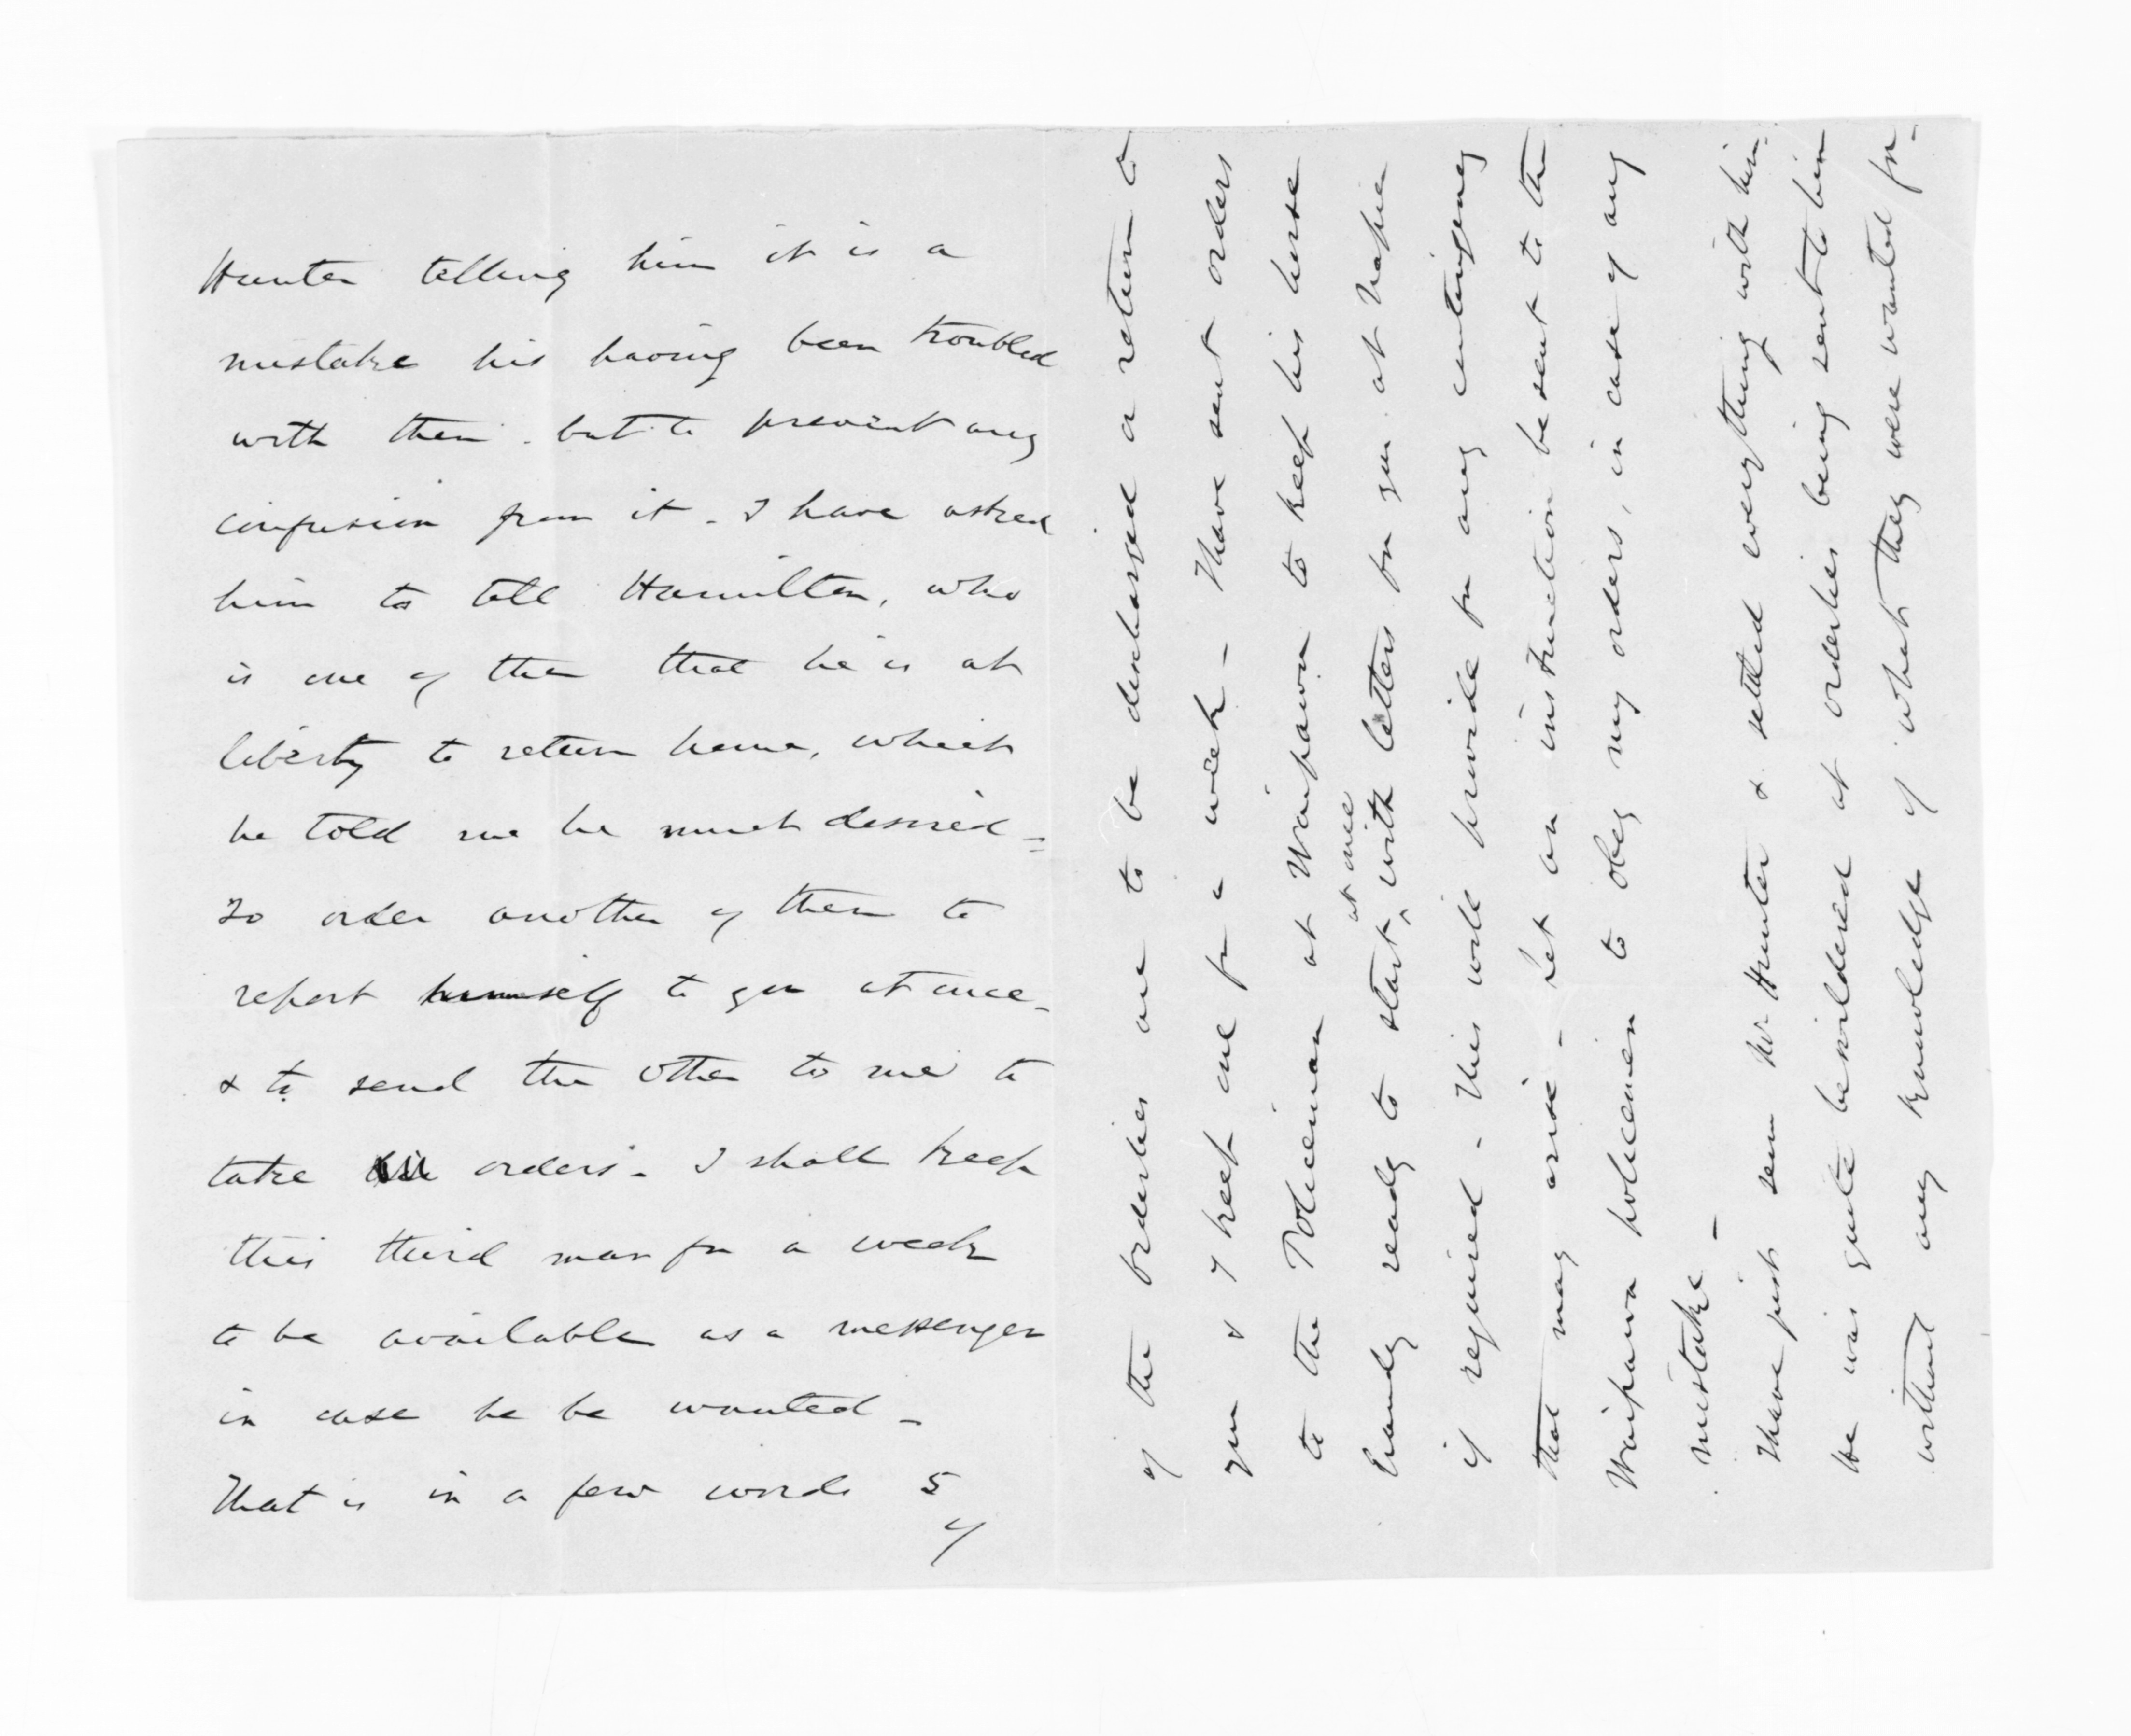 Hunter telling him it is a
mistake his having been troubled
with them. but to prevent any
confusion from it - I have asked
him to tell Hamilton, who
is one of them that he is at
liberty to return home, which
he told me he much desired =
To order another of them to
report himself to you at once -
& to send the other to me to
take orders - I shall keep
this third man for a week
to be available as a messenger
in case he be wanted -
That is in a few words
of the orderlies one to be discharged a return to
you & I keep one for a week - I have sent orders
to the Policeman at Waipawa to keep his horse
handy ready to start, at once with letters for you at Napier
if required - This will provide for any contingency
that may arise - Let an instruction be sent to the
Waipawa policemen to obey my orders, in case of any
mistake -
I have just seen Mr Hunter & settled everything with him.
He was quite bewildered at orderlies being sent to him
without any knowledge of what they were wanted for -